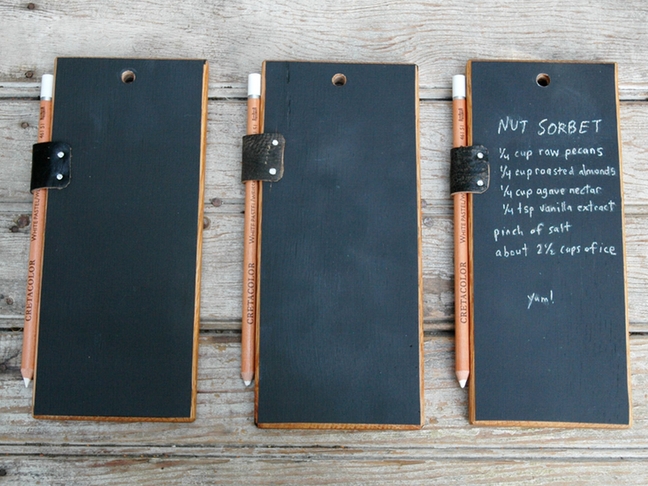 CRETACOLOR WHITE PASTEL
CRETACOLOR
CRETACOLOR
NUT SORBET
1/4 cup raw pecans
1/4 cup roasted almonds
1/4 cup agave nectar
1/4 tsp vanilla extract
pinch of salt
about 2 1/2 cups of ice
yum!